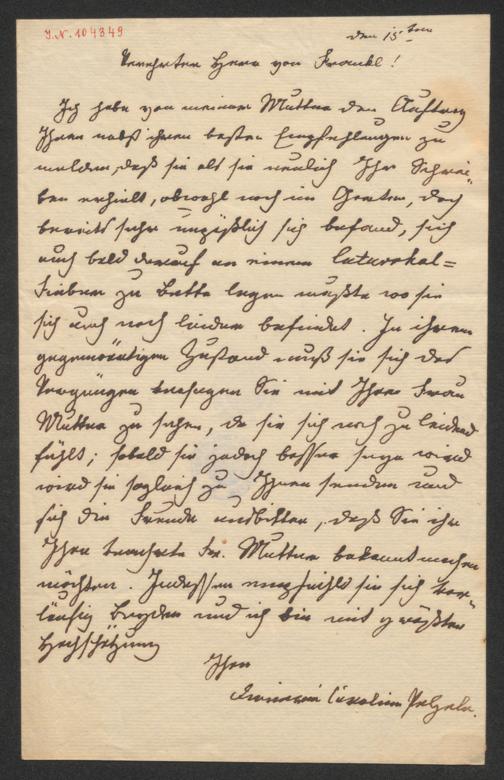 J.N. 104349
den 15ten
Verehrter Herr von Frankl!
Ich habe von meiner Mutter den Auftrag
Ihnen nebst ihren besten Empfehlungen zu
melden, daß sie als sie neulich Ihr Schrei-
ben erhielt, obwohl noch im Garten, doch
bereits sehr unpäßlich sich befand, sich
auch bald darauf an einem
Fieber zu Bette legen mußte wo sie
sich auch noch leider befindet. In ihrem
gegenwärtigen Zustand muß sie sich das
Vergnügen versagen Sie mit Ihrer Frau
Mutter zu sehen, da sie sich noch zu leidend
fühlt; sobald sie jedoch besser seyn wird
wird sie sogleich zu Ihnen senden und
sich die Freude ausbitten, daß Sie ihr
Ihre verehrte Fr. Mutter bekannt machen
möchten. Indessen empfiehlt sie sich vor-
läufig beyden und ich bin mit größter
Hochschätzung
Ihre
Caroline Pichler.